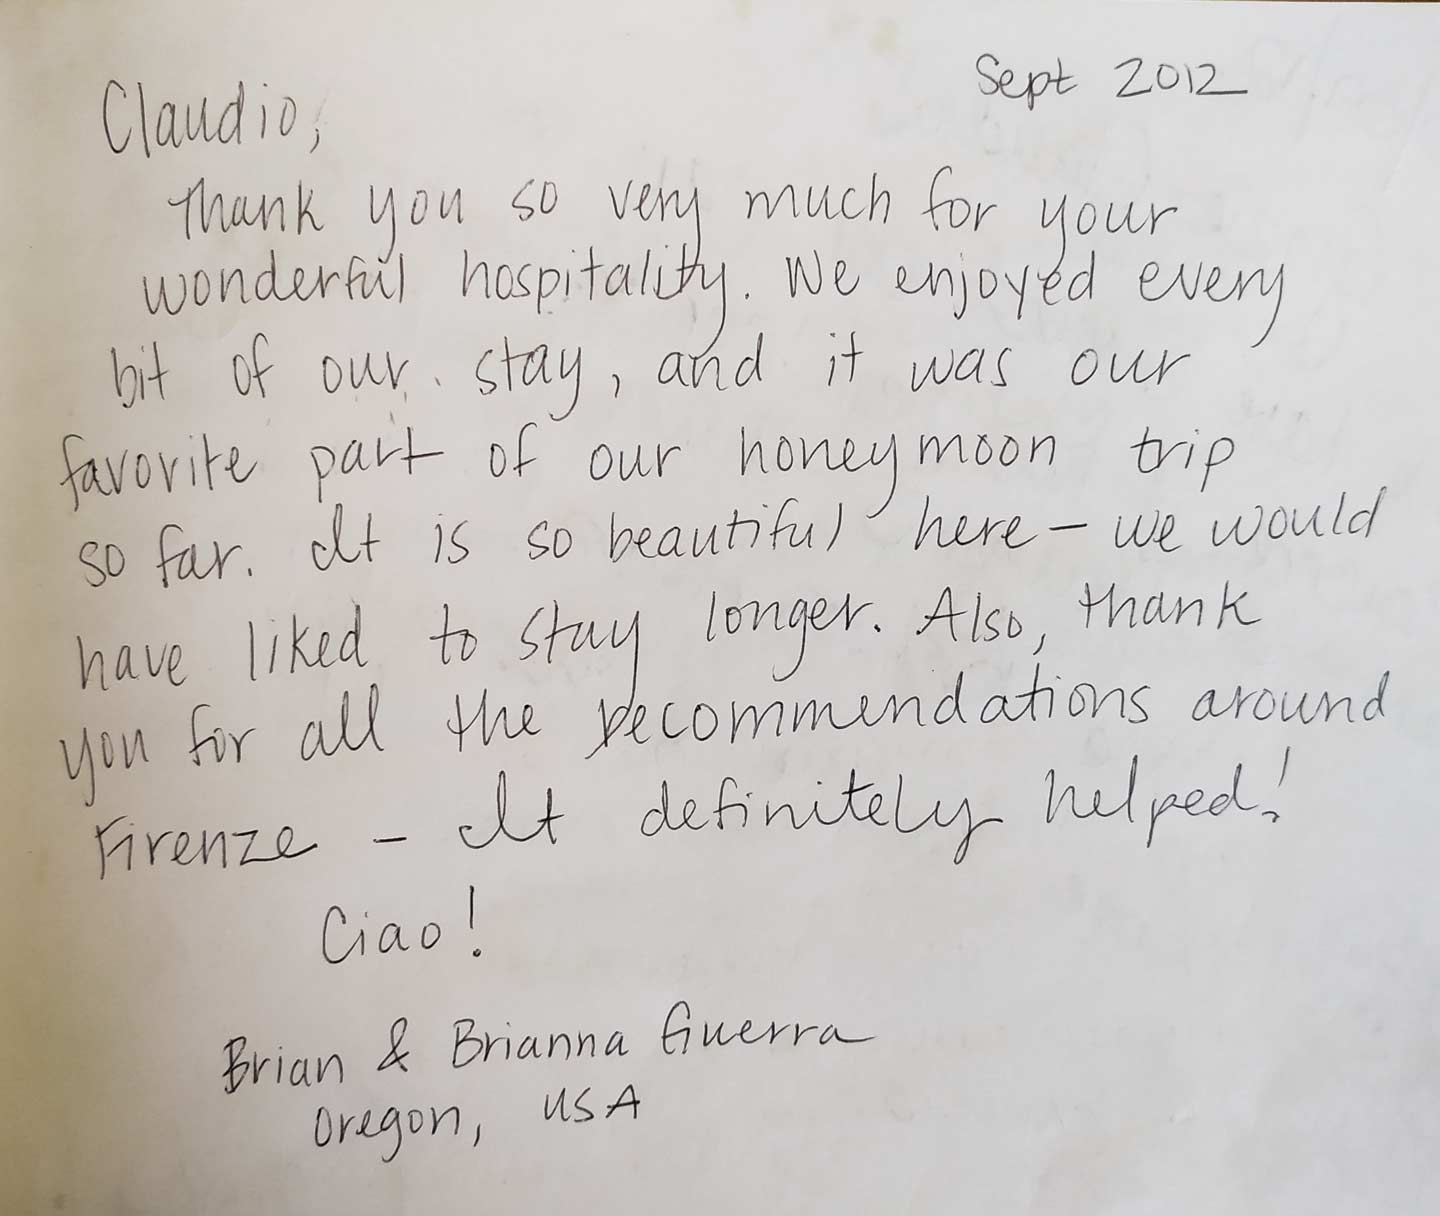 Sept 2012
Claudio,
Thank you so very much for your
wonderful hospitality. We enjoyed every
bit of our stay, and it was our
favorite part of our honeymoon trip
so far. It is so beautiful here – we would
have liked to stay longer. Also, thank
you for all the recommendations around
Firenze – It definitely helped!
Ciao!
Brian & Brianna Guerra
Oregon, USA